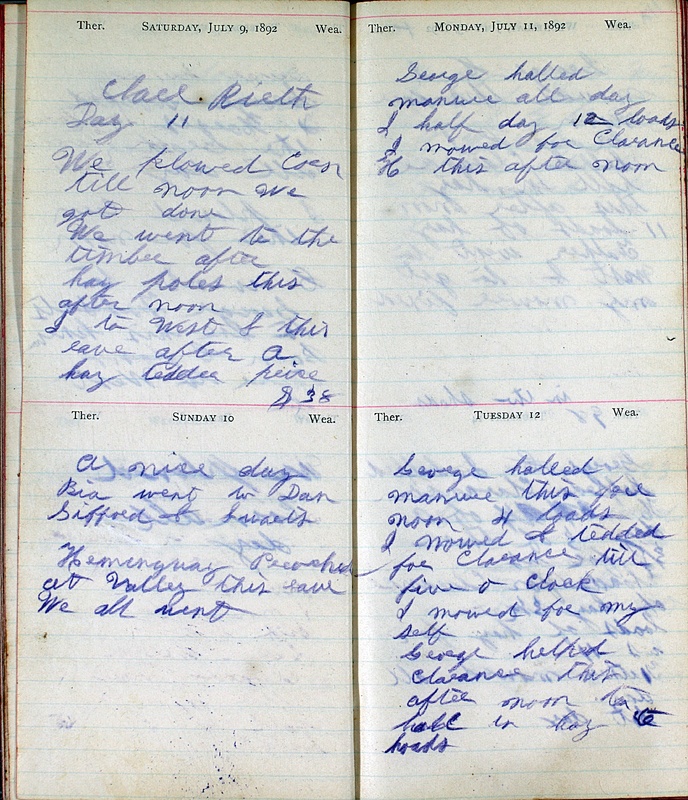 Ther. SATURDAY, JULY 9, 1892 Wea.
Chall Rieth
Day 11
We plowed Corn
till noon We
got done
We went to the
timber after
hay poles this
after noon
I to West L this
eave after A
hay tedder price
$ 38
Ther. SUNDAY 10 Wea.
A nice day
went to Dan
Gifford
Hemingway Preached
at Valley this eave
We all went
Ther. MONDAY, JULY 11, 1892 Wea.
George halled
manure all day
I half day 12 loads
I mowed for Clarance
H this after noon
Ther. TUESDAY 12 Wea.
George halled
manure this fore
noon 4 loads
I mowed & tedded
for Clarance till
five o clock
I mowed for my
self
George helped
Clarance this
after noon to
hall in hay 6
loads